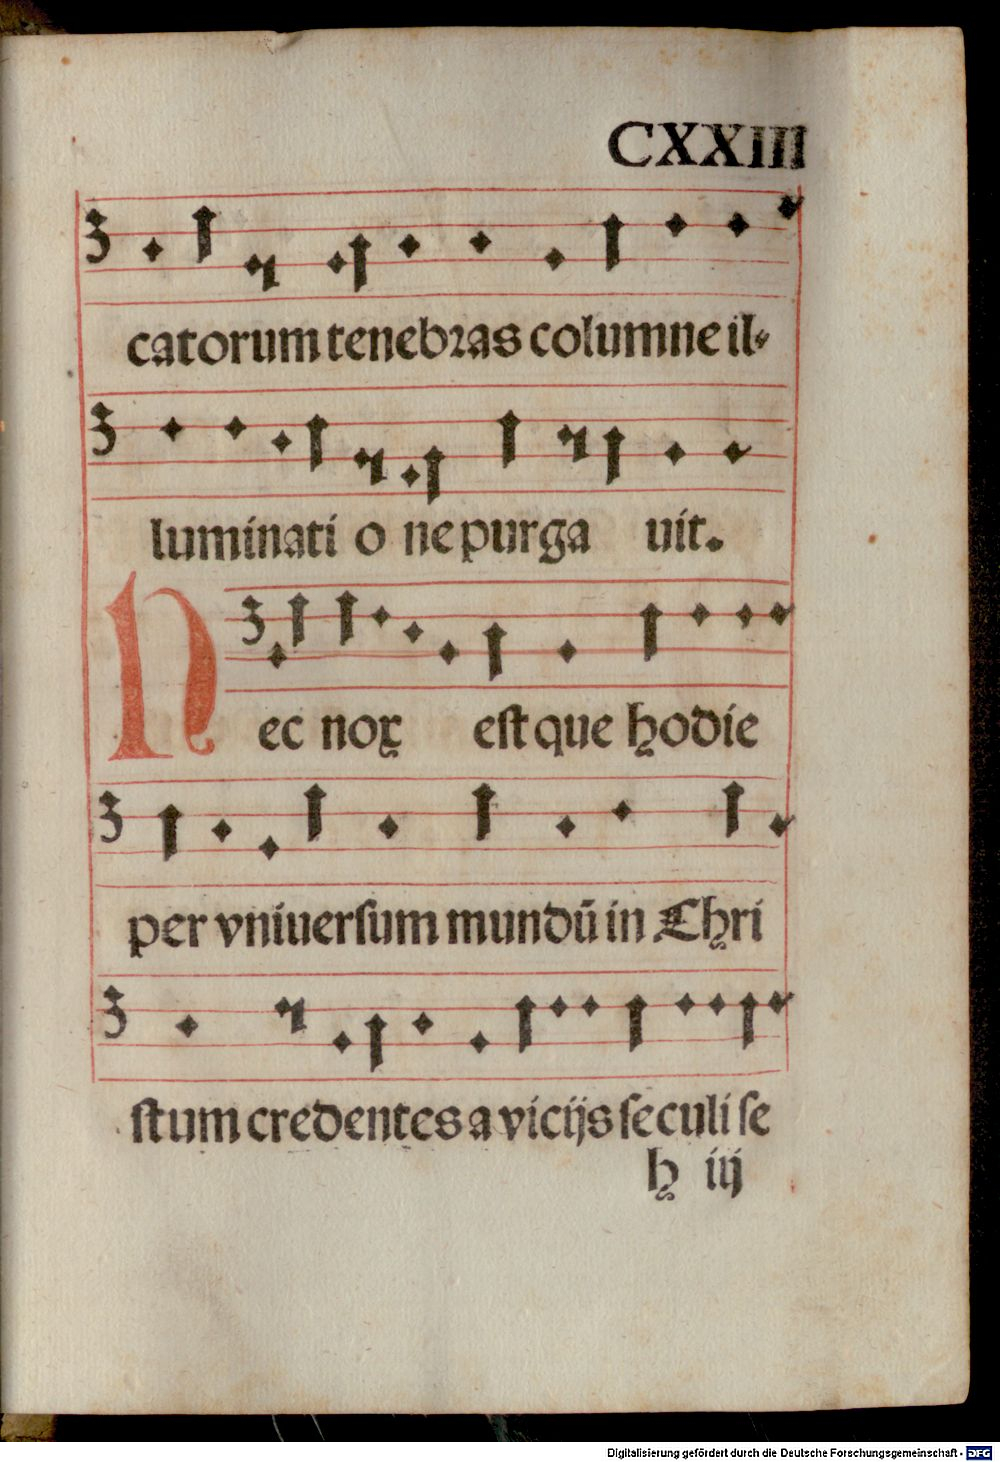 CXXIII
catorum tenebꝛas columne il⸗
luminati o ne purga uit.
Nec nox est que hodie
per vniuersum mundū in Chri
stum credentes a vicijs seculi se
h iij
Digitalisierung gefördert durch die Deutsche Forschungsgemeinschaft - DFG